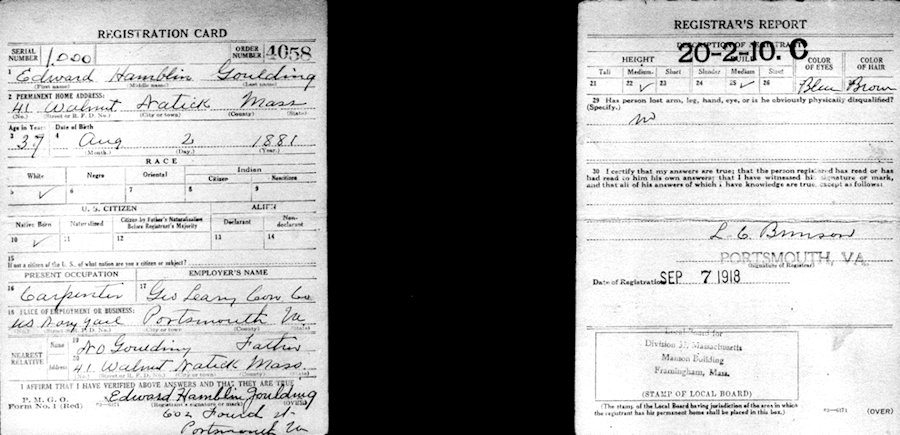 REGISTRATION CARD
SERIAL NUMBER 1000 ORDER NUMBER 4058
1 Edward Hamblin Goulding
(First name) (Middle name) (Last name)
2 PERMANENT HOME ADDRESS:
41 Walnut Natick Mass
(No.) (Street or R. F. D. No.) (City or town) (County) (State)
Age in Years Date of Birth
3 37 4 Aug 2 1881
(Month.) (Day.) (Year.)
RACE
White Negro Oriental Indian
Citizen Noncitizen
5 ✓ 6 7 8 9
U. S. CITIZEN ALIEN
Native Born Naturalized Citizen by Father's Naturalization Before Registrant's Majority Declarant Non-declarant
10 ✓ 11 12 13 14
15
If not a citizen of the U. S., of what nation are you a citizen or subject?
PRESENT OCCUPATION EMPLOYER'S NAME
16 Carpenter 17 Geo Leary Con Co
18 PLACE OF EMPLOYMENT OR BUSINESS:
US Portsmouth Va
(No.) (Street or R. F. D. No.) (City or town) (County) (State)
NEAREST RELATIVE Name 19 Goulding Father
Address 20 41 Walnut Natick Mass
I AFFIRM THAT I HAVE VERIFIED ABOVE ANSWERS AND THAT THEY ARE TRUE
P. M. G. O.
Form No. 1 (Red) Edward Hamblin Goulding
(Registrant's signature or mark) (OVER)
602 St
Portsmouth Va
REGISTRAR'S REPORT
DESCRIPTION OF REGISTRANT
20-2-10. C
HEIGHT BUILD COLOR OF EYES COLOR OF HAIR
Tall Medium Short Slender Medium Stout
21 22 ✓ 23 24 25 ✓ 26 27 Blue 28 Brown
29 Has person lost arm, leg, hand, eye, or is he obviously physically disqualified?
(Specify.)
no
30 I certify that my answers are true; that the person registered has read or has had read to him his own answers; that I have witnessed his signature or mark, and that all of his answers of which I have knowledge are true, except as follows:
L. C. Brinson
PORTSMOUTH, VA.
(Signature of Registrar)
Date of Registration SEP 7 1918
Local Board for
Division Massachusetts
Mason Building
Framingham, Mass.
(STAMP OF LOCAL BOARD)
(The stamp of the Local Board having jurisdiction of the area in which the registrant has his permanent home shall be placed in this box.)
(OVER)